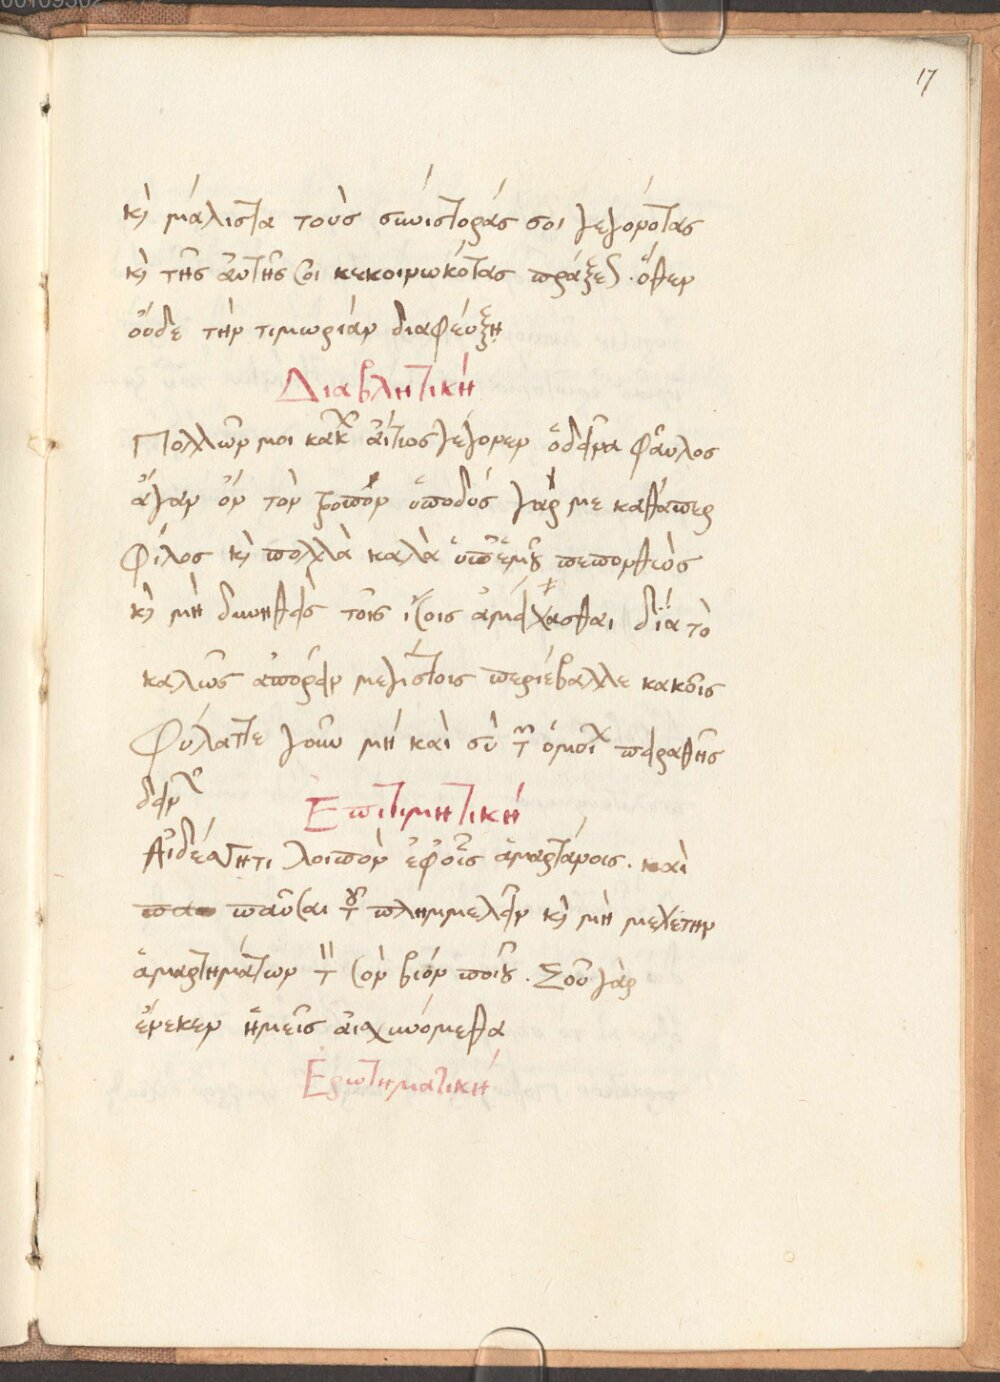 17
κὶ μάλιστα τοὺσ συνίστοράσ σοι γεγονότας
κὶ τῆς ἀυτῆς σοι κεκοινωκότας πράξεως. ὅθεν
ὀύδε τὴν τιμωρίαν διαφεύξη
Διαβλητική
Πολλῶν μοι κακ ἄιτιος γέγονεν ὁ δεῖνα φᾶυλος
ἄγαν ὂν τὸν τροπὸν ὑποδύς γάρ με καθάπερ
φίλος κὶ πολλὰ καλὰ ὑπ ἐμοῦ πεπονθὼς
κὶ μὴ δυνηθεὶς τοῖς ἴσοις ἀμείψασθαι διὰ τὸ
καλῶς ἀπορεῖν μεγίστοις περιέβαλλε κακοῖς
Φύλαττε γοῦν μή καὶ σὺ τ ὅμοι παραθῆς
δειν
Ἐπιτιμητική
Αἰδέσθητι λοιπὸν ἐφ οἷς ἁμαρτάνοις. καὶ
παῦσαι τοῦ πλημμελεῖν κὶ μὴ μελέτην
ἁμαρτημάτων τ σὸν βιόν ποιοῦ. Σοῦ γὰρ
ἕνεκεν ἡμεῖς ἀισχυνόμεθα
Ἐρωτηματική